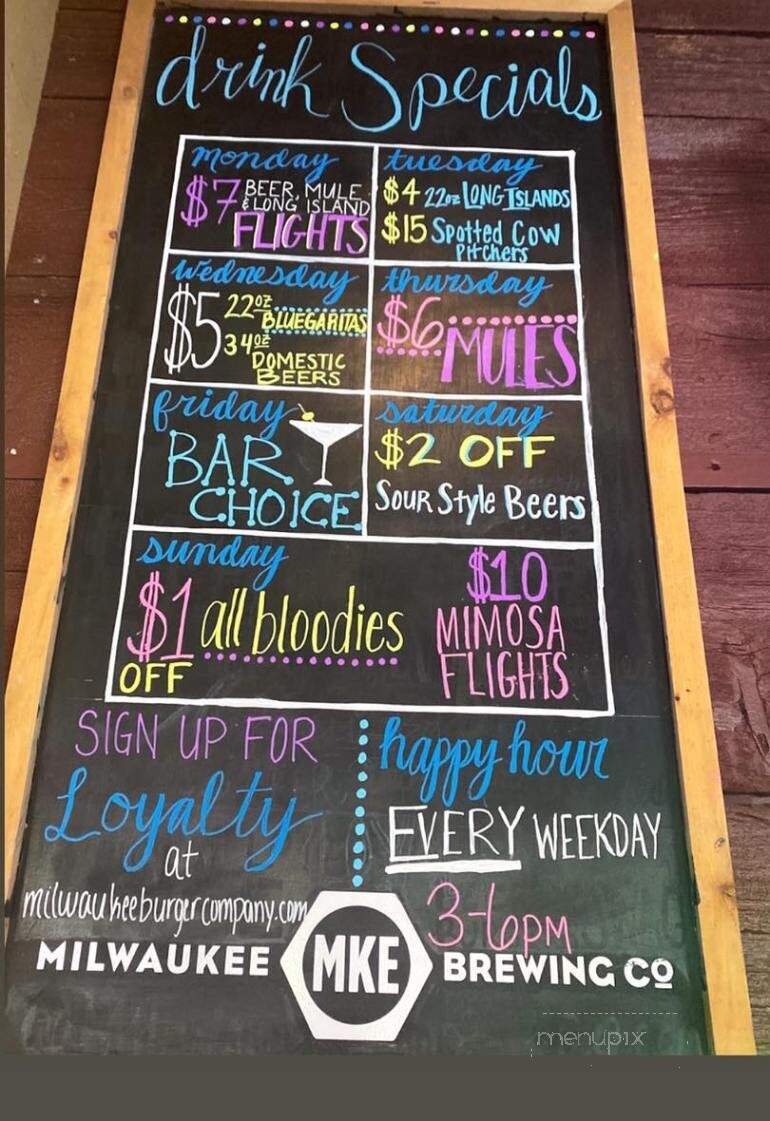 drink Specials
monday
$7 BEER, MULE
& LONG ISLAND
FLIGHTS
tuesday
$4 22oz LONG ISLANDS
$15 Spotted Cow
Pitchers
wednesday
$5 22oz BLUEGARITAS
34oz DOMESTIC
BEERS
thursday
$6 MULES
friday
BAR
CHOICE
saturday
$2 OFF
Sour Style Beers
sunday
$1 all bloodies
OFF
$10
MIMOSA
FLIGHTS
SIGN UP FOR
Loyalty
at
milwaukeeburgercompany.com
happy hour
EVERY WEEKDAY
3-6PM
MILWAUKEE MKE BREWING CO
menupix